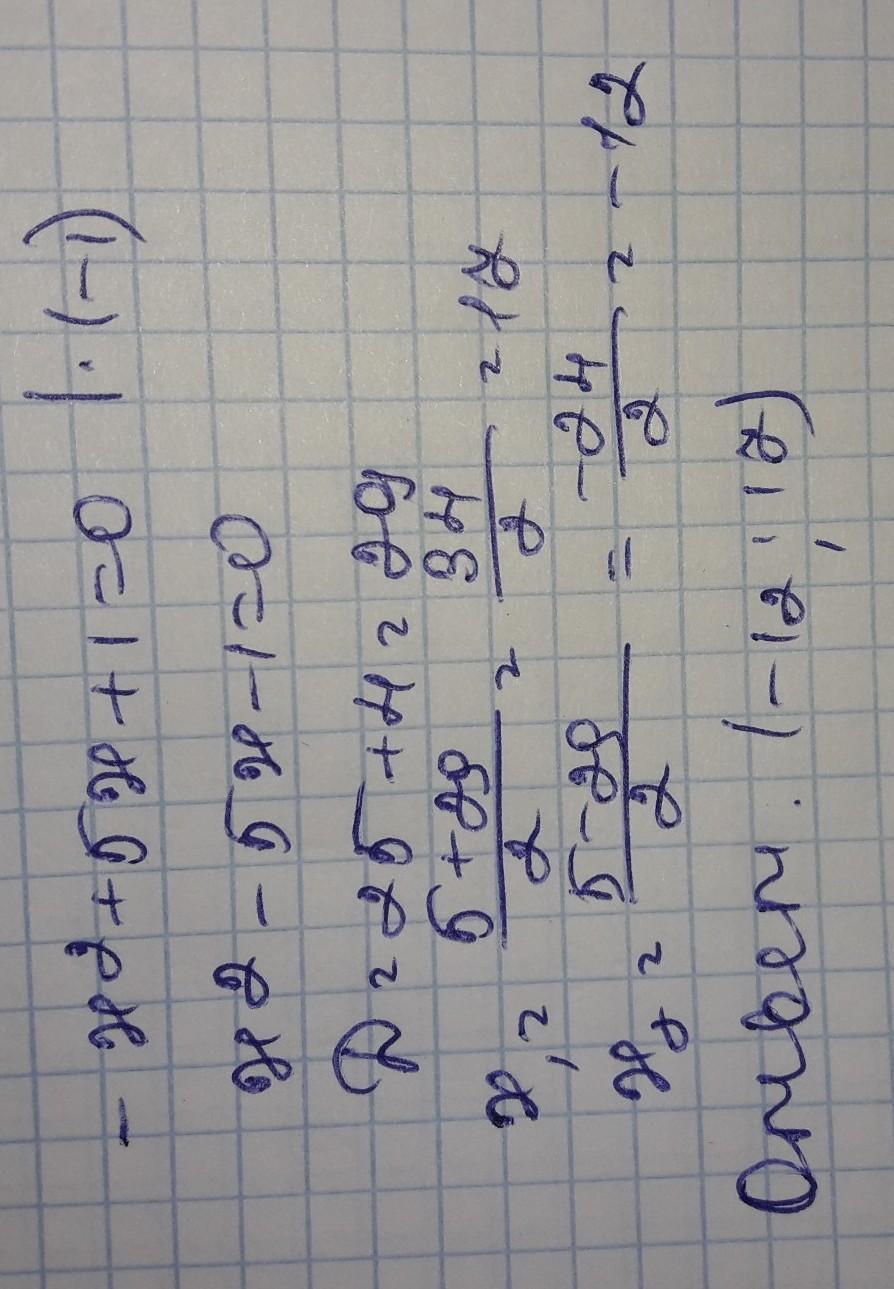 - x2 + 5x + 1 = 0 | · (-1)
x2 - 5x - 1 = 0
D = 25 + 4 = 29
x1 = 5 + 29 / 2 = 34 / 2 = 17
x2 = 5 - 29 / 2 = -24 / 2 = -12
Ответ. (-12; 17)